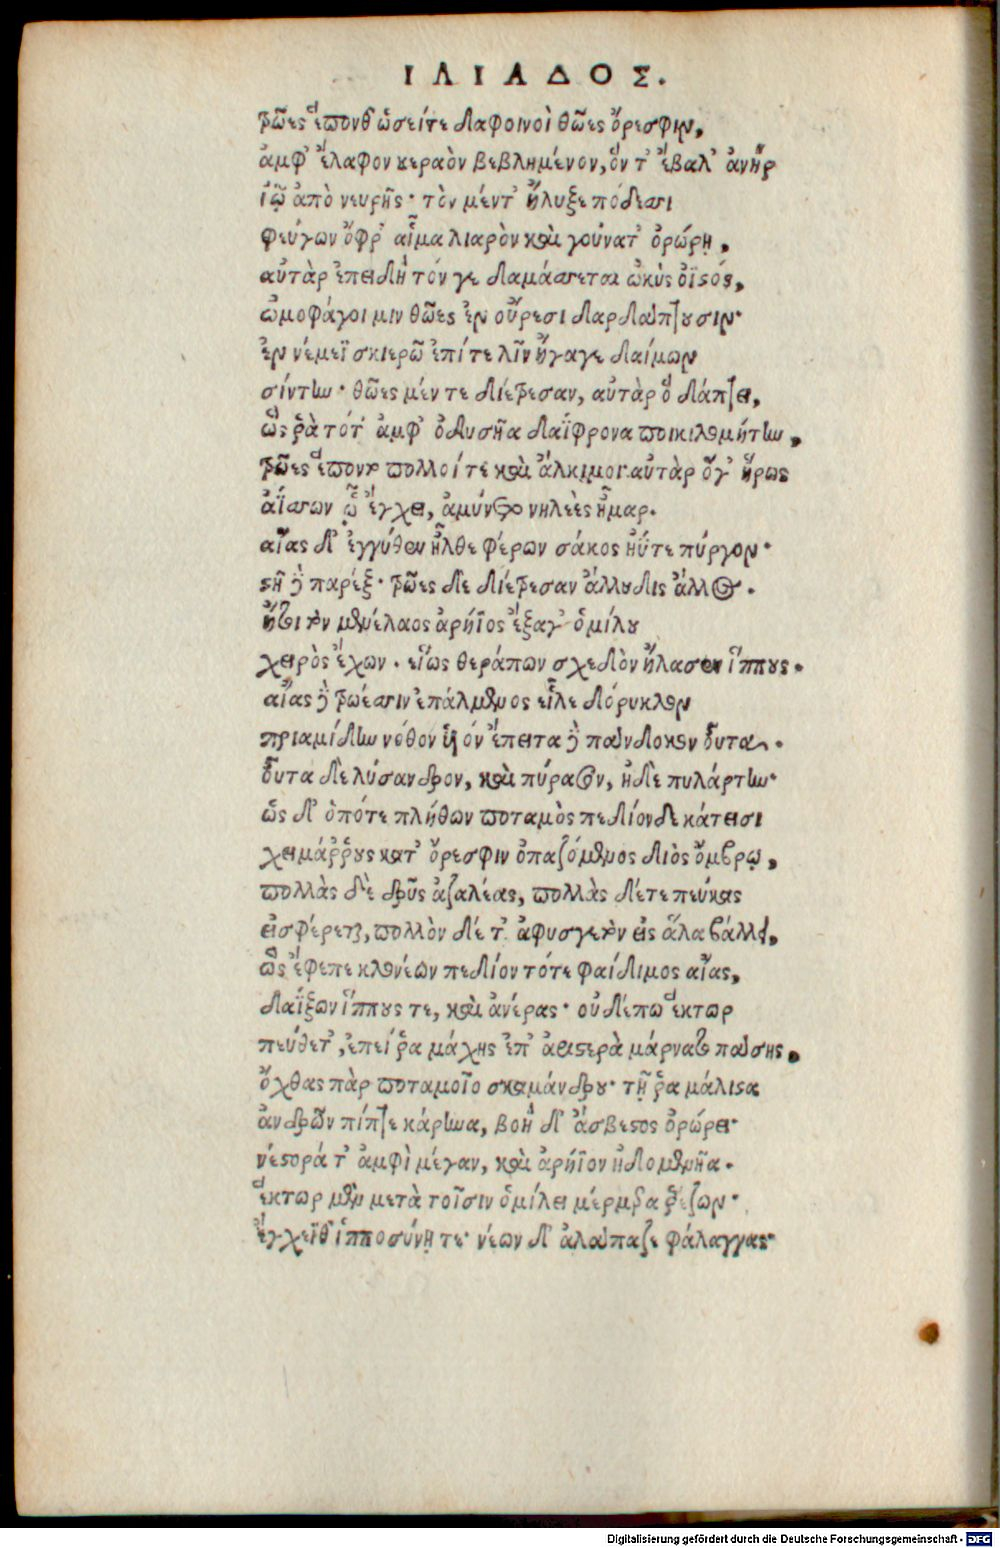 ΙΛΙΑΔΟΣ.
τρῶες ἕπονθ' ὡσείτε δαφοινοὶ θῶες ὄρεσφιν,
ἀμφ' ἔλαφον κεραὸν βεβλημένον, ὅν τ' ἔβαλ' ἀνὴρ
ἰῷ ἀπὸ νευρῆς· τὸν μέντ' ἤλυξε πόδεσσι
φεύγων ὄφρ' αἷμα λιαρὸν καὶ γούνατ' ὀρώρῃ,
αὐτὰρ ἐπειδὴ τόν γε δαμάσσεται ὠκὺς ὀϊστός,
ὠμοφάγοι μιν θῶες ἐν οὔρεσι δαρδάπτουσιν·
ἐν νέμεϊ σκιερῶ ἐπί τε λῖν ἤγαγε δαίμων
σίντην· θῶες μέν τε διέτρεσαν, αὐτὰρ ὃ δάπτει,
ὥς ῥὰ τότ' ἀμφ' ὀδυσῆα δαΐφρονα ποικιλομήτην,
τρῶες ἕπον πολλοί τε καὶ ἄλκιμοι· αὐτὰρ ὅγ' ἥρως
ἀΐσσων ᾧ ἔγχει, ἀμύνετο νηλεὲς ἦμαρ.
αἴας δ' ἐγγύθεν ἦλθε φέρων σάκος ἠΰτε πύργον·
στῆ δὲ παρέξ· τρῶες δὲ διέτρεσαν ἄλλυδις ἄλλος.
ἤτοι τὸν μενέλαος ἀρήϊος ἔξαγ' ὁμίλου
χειρὸς ἔχων. εἵως θεράπων σχεδὸν ἤλασεν ἵππους.
αἴας δὲ τρώεσσιν ἐπάλμενος εἷλε δόρυκλον
πριαμίδην νόθον υἱόν ἔπειτα δὲ πάνδοκον οὖτα.
οὖτα δὲ λύσανδρον, καὶ πύρασον, ἠδὲ πυλάρτην·
ὡς δ' ὁπότε πλήθων ποταμὸς πεδίονδε κάτεισι
χειμάῤῥους κατ' ὄρεσφιν ὀπαζόμενος διὸς ὄμβρῳ,
πολλὰς δὲ δρῦς ἀζαλέας, πολλὰς δέ τε πεύκας
εἰσφέρεται, πολλὸν δέ τ' ἀφυσγετὸν εἰς ἅλα βάλλει,
ὣς ἔφεπε κλονέων πεδίον τότε φαίδιμος αἴας,
δαΐξων ἵππους τε, καὶ ἀνέρας· οὐδέπω ἕκτωρ
πεύθετ', ἐπεί ῥα μάχης ἐπ' ἀριστερὰ μάρνατο πάσης,
ὄχθας πὰρ ποταμοῖο σκαμάνδρου· τῇ ῥα μάλιστα
ἀνδρῶν πίπτε κάρηνα, βοὴ δ' ἄσβεστος ὀρώρει·
νέστορά τ' ἀμφὶ μέγαν, καὶ ἀρήϊον ἰδομενῆα.
ἕκτωρ μὲν μετὰ τοῖσιν ὁμίλει μέρμερα ῥέζων·
ἔγχεΐ θ' ἱπποσύνῃ τε· νέων δ' ἀλάπαζε φάλαγγας·
Digitalisierung gefördert durch die Deutsche Forschungsgemeinschaft - DFG